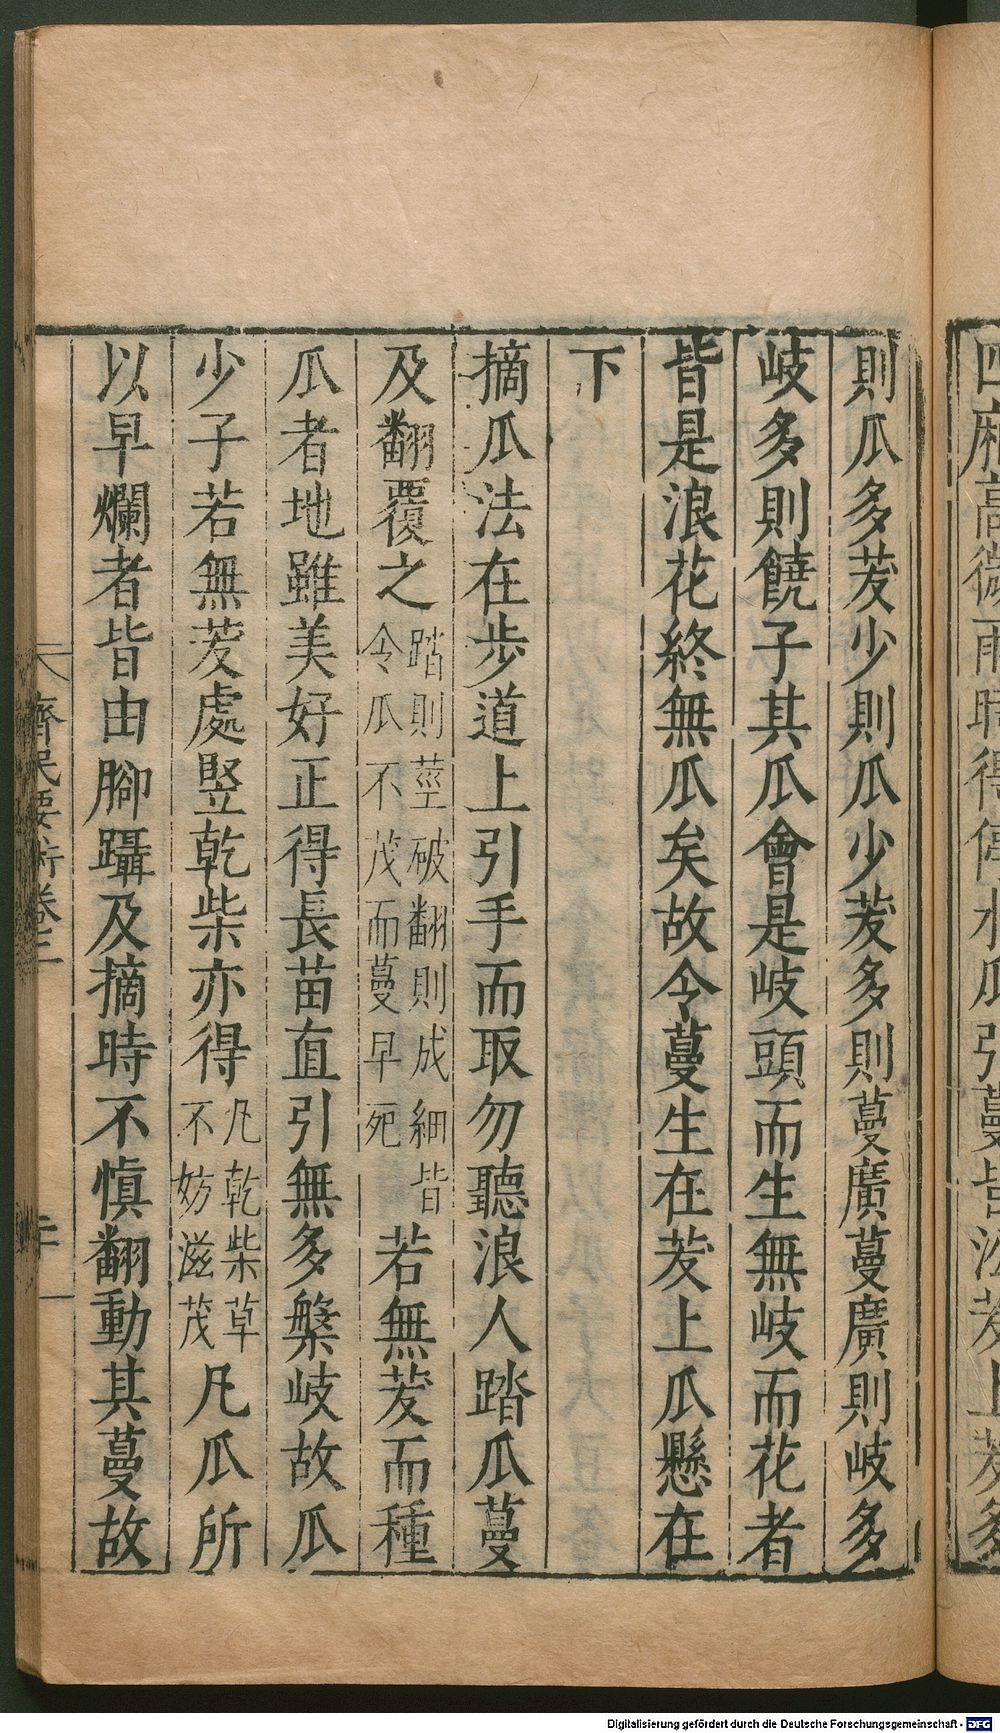 四厢高微雨時得停水瓜引蔓皆沿茇上茇多
則瓜多茇少則瓜少茇多則蔓廣蔓廣則岐多
岐多則饒子其瓜會是岐頭而生無岐而花者
皆是浪花終無瓜矣故令蔓生在茇上瓜懸在
下
摘瓜法在步道上引手而取勿聽浪人踏瓜蔓
及翻覆之踏則莖破翻則成細皆令瓜不茂而蔓早死若無茇而種
瓜者地雖美好正得長苗直引無多槃岐故瓜
少子若無茇處竪乾柴亦得凡乾柴草不妨滋茂凡瓜所
以早爛者皆由腳躡及摘時不慎翻動其蔓故
齊民要術卷二
二十
Digitalisierung gefördert durch die Deutsche Forschungsgemeinschaft - DFG